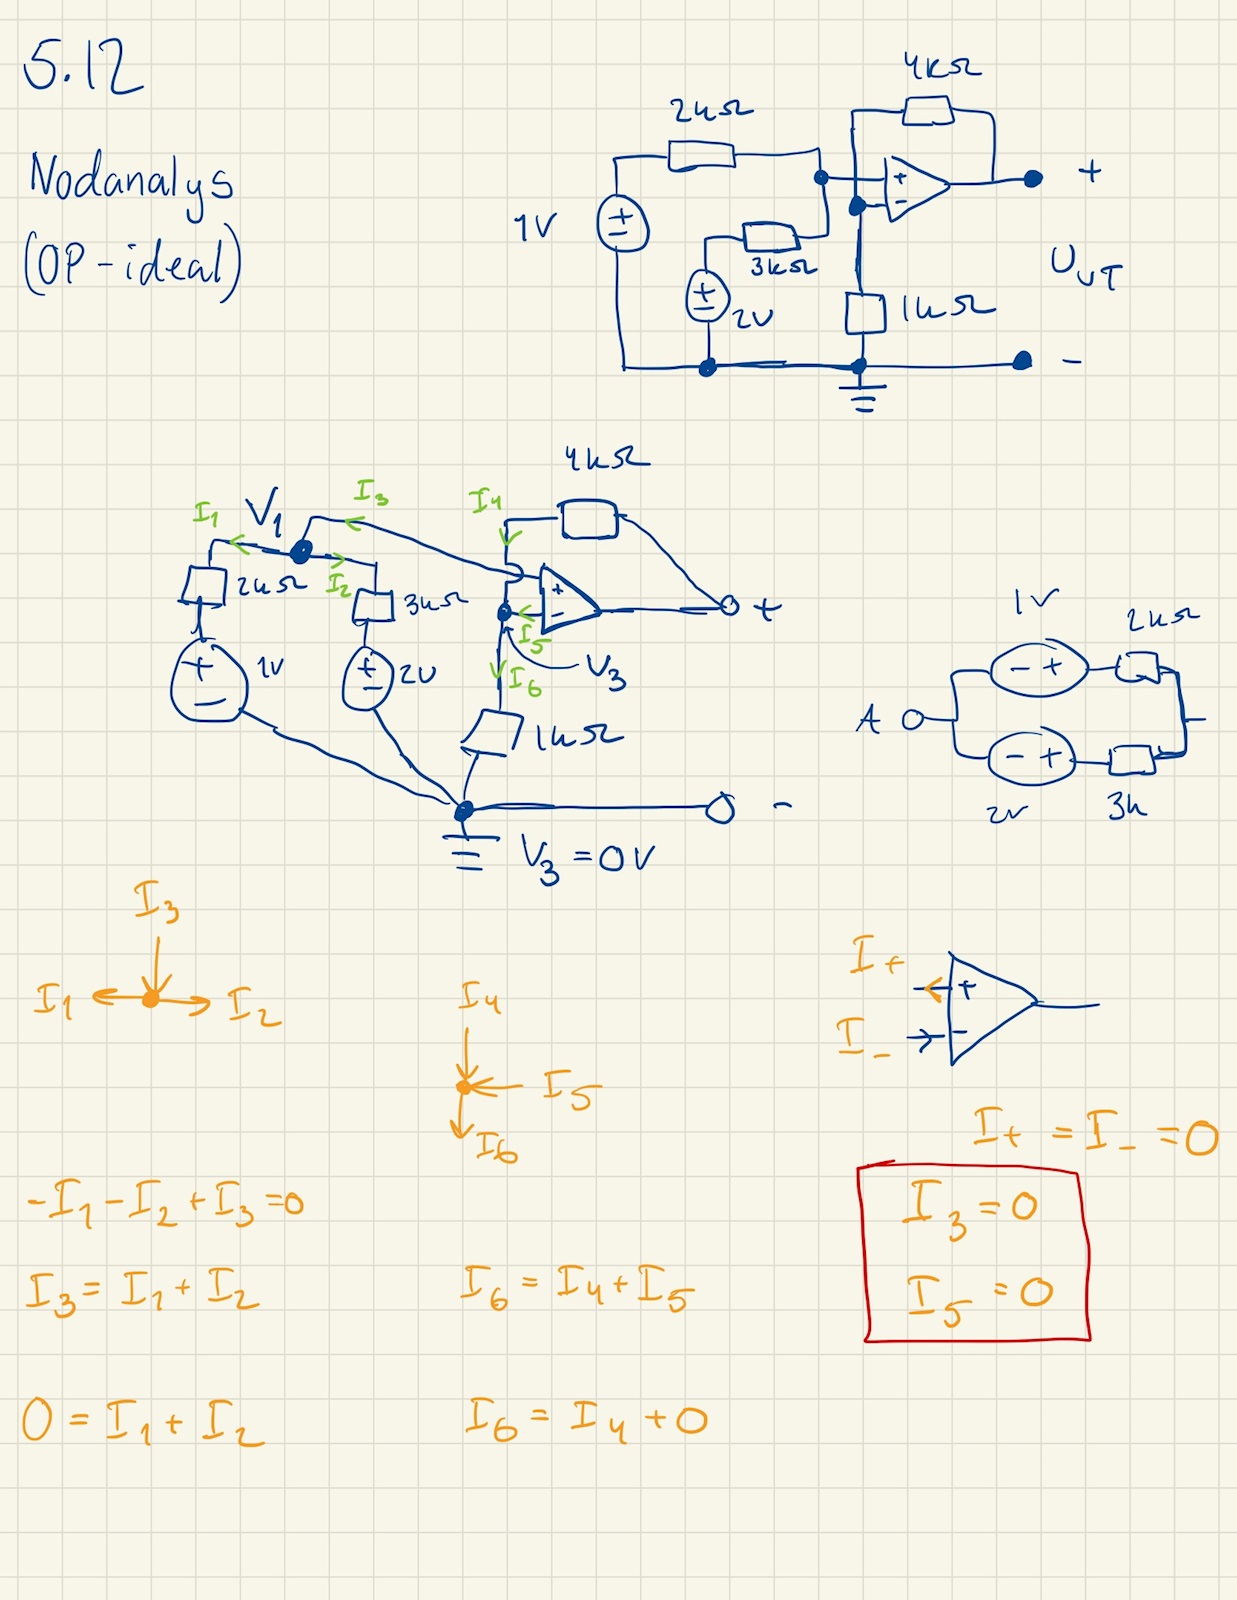 5.12
Nodanalys
(OP-ideal)
4kΩ
2kΩ
1V
±
3kΩ
±
2V
+
-
1kΩ
+
U_UT
-
4kΩ
I₁
V₁
I₃
I₄
2kΩ
I₂
3kΩ
+
-
+
I₅
+
-
1V
±
2V
V₃
I₆
1kΩ
-
V₃ = 0V
1V
- +
2kΩ
A
- +
2V
3k
I₃
I₁
I₂
I₄
I₅
I₆
I₊
+
I₋
-
I₊ = I₋ = 0
-I₁ - I₂ + I₃ = 0
I₃ = 0
I₃ = I₁ + I₂
I₆ = I₄ + I₅
I₅ = 0
0 = I₁ + I₂
I₆ = I₄ + 0